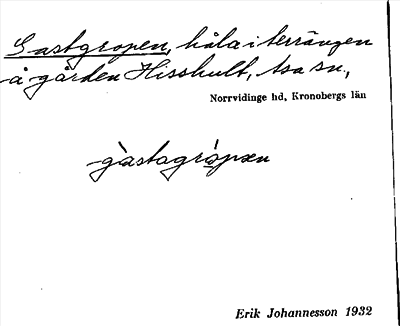 Gastgropen, håla i terrängen
å gården Hisshult, Asa sn,
Norrvidinge hd, Kronobergs län
gàstagrò̀pen
Erik Johannesson 1932